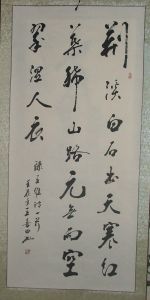 荆溪白石出天寒红
葉稀山路元无雨空
翠湿人衣
録王维诗一首